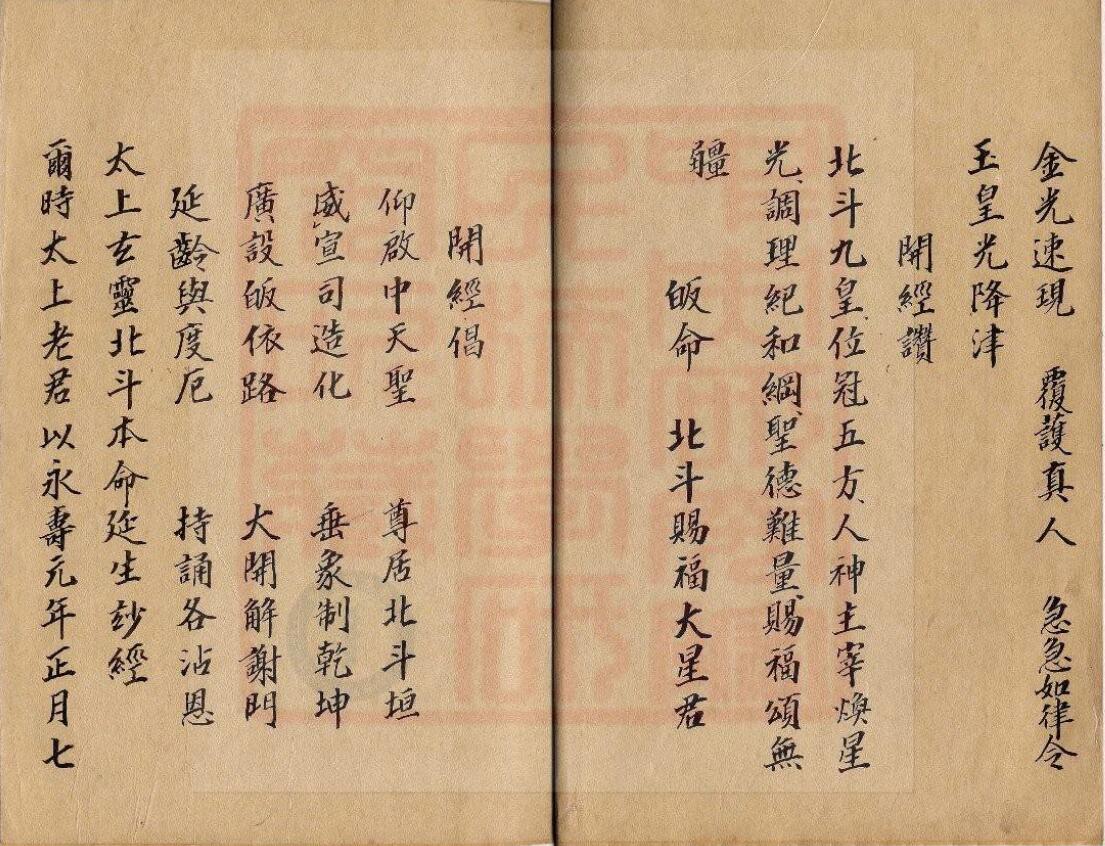 金光速現　覆護真人　急急如律令
玉皇光降津
開經讚
北斗九皇、位冠五方、人神主宰煥星
光、調理紀和綱、聖德難量、賜福頌無
疆　皈命　北斗賜福大星君
開經偈
仰啟中天聖　尊居北斗垣
威宣司造化　垂象制乾坤
廣設皈依路　大開解謝門
延齡與度厄　持誦各沾恩
太上玄靈北斗本命延生玅經
爾時太上老君以永壽元年正月七